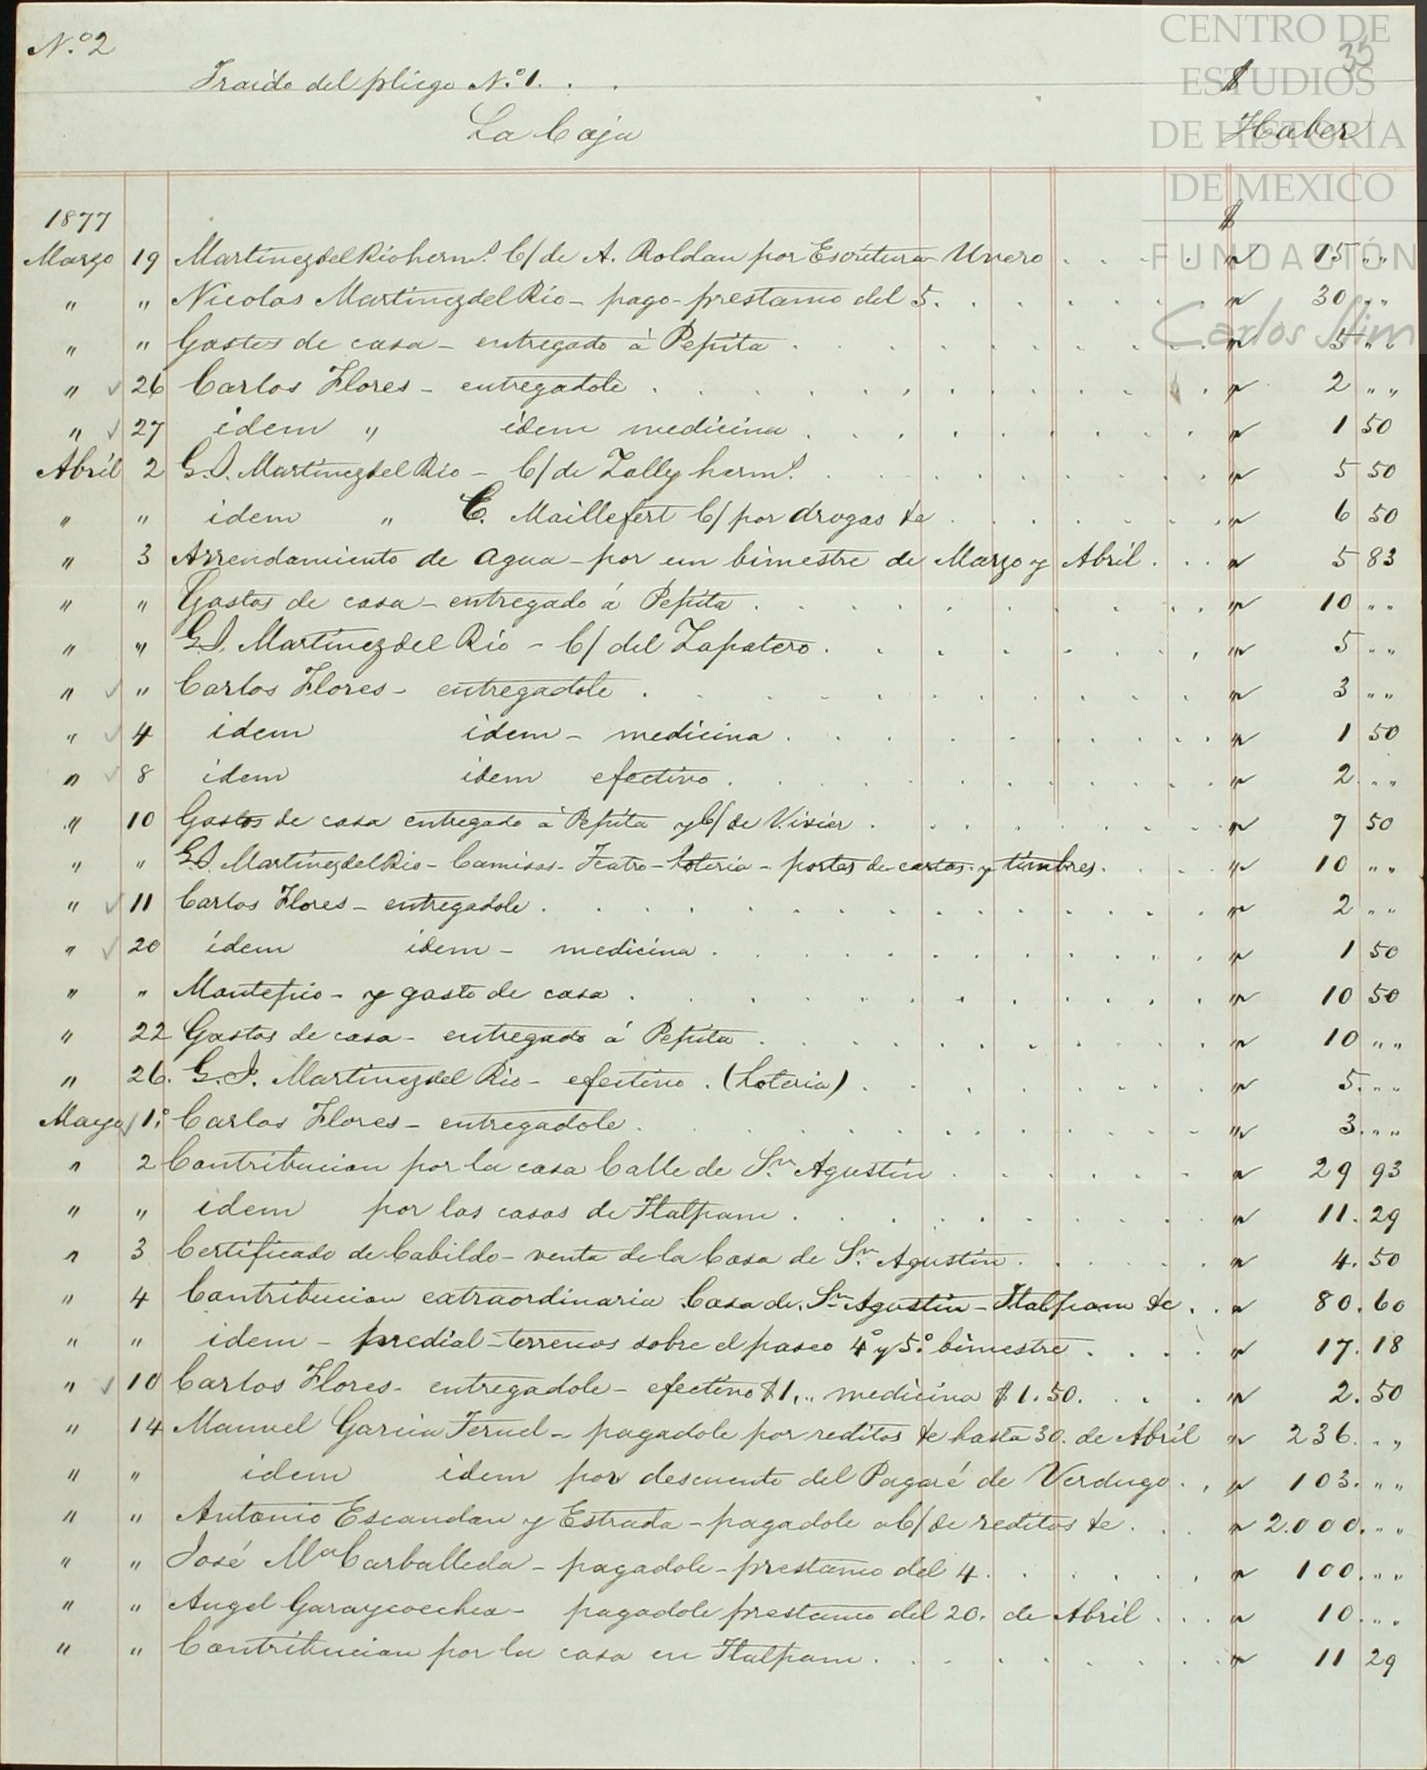 N.º 2
35
Traido del pliego N.º 1. . . $
La Caja Haber
CENTRO DE
ESTUDIOS
DE HISTORIA
DE MEXICO
FUNDACIÓN
Carlos Slim
1877 $
Marzo 19 Martinez del Rio herm.s C/ de A. Roldan por Escritura Unero . . . . " 15 " "
" " Nicolas Martinez del Rio - pago - prestamo del 5. . . . . . " 30 " "
" " Gastos de casa - entregado á Pepita . . . . . . " 5 " "
" 26 Carlos Flores - entregadole . . . . . . " 2 " "
" 27 idem " idem medicina . . . . . . " 1 50
Abril 2 G. I. Martinez del Rio - C/ de Zolly herm.s . . . . . . " 5 50
" " idem " C. Maillefert C/ por drogas &c . . . . . . " 6 50
" 3 Arrendamiento de agua - por un bimestre de Marzo y Abril . . . " 5 83
" " Gastos de casa - entregado á Pepita . . . . . . " 10 " "
" " G. I. Martinez del Rio - C/ del Zapatero . . . . . . " 5 " "
" " Carlos Flores - entregadole . . . . . . " 3 " "
" 4 idem idem - medicina . . . . . . " 1 50
" 8 idem idem efectivo . . . . . . " 2 " "
" 10 Gastos de casa entregado á Pepita y C/ de Vivier . . . . . . " 7 50
" " G. I. Martinez del Rio - Camisas - Teatro - loteria - portes de cartas y timbres . . . . " 10 " "
" 11 Carlos Flores - entregadole . . . . . . " 2 " "
" 20 idem idem - medicina . . . . . . " 1 50
" " Montepio - y gasto de casa . . . . . . " 10 50
" 22 Gastos de casa - entregado á Pepita . . . . . . " 10 " "
" 26. G. I. Martinez del Rio - efectivo . (Loteria) . . . . . . " 5. " "
Mayo 1.º Carlos Flores - entregadole . . . . . . " 3. " "
" 2 Contribucion por la casa Calle de S.n Agustin . . . . . . " 29 93
" " idem por las casas de Tlalpam . . . . . . " 11. 29
" 3 Certificado de Cabildo - venta de la Casa de S.n Agustin . . . . . . " 4. 50
" 4 Contribucion extraordinaria Casa de S.n Agustin - Tlalpam &c . . " 80. 60
" " idem - predial - terrenos sobre el paseo 4º y 5º bimestre . . . . " 17. 18
" 10 Carlos Flores - entregadole - efectivo $1, " medicina $1.50. . . . " 2. 50
" 14 Manuel Garcia Teruel - pagadole por reditos &c hasta 30. de Abril " 236. " "
" " idem idem por descuento del Pagaré de Verdugo . . " 103. " "
" " Antonio Escandon y Estrada - pagadole a C/ de reditos &c . . . " 2.000. " "
" " José M.a Carballeda - pagadole - prestamo del 4 . . . . . . " 100. " "
" " Angel Garaycoechea - pagadole prestamo del 20. de Abril . . . " 10. " "
" " Contribucion por la casa en Tlalpam . . . . . . " 11 29